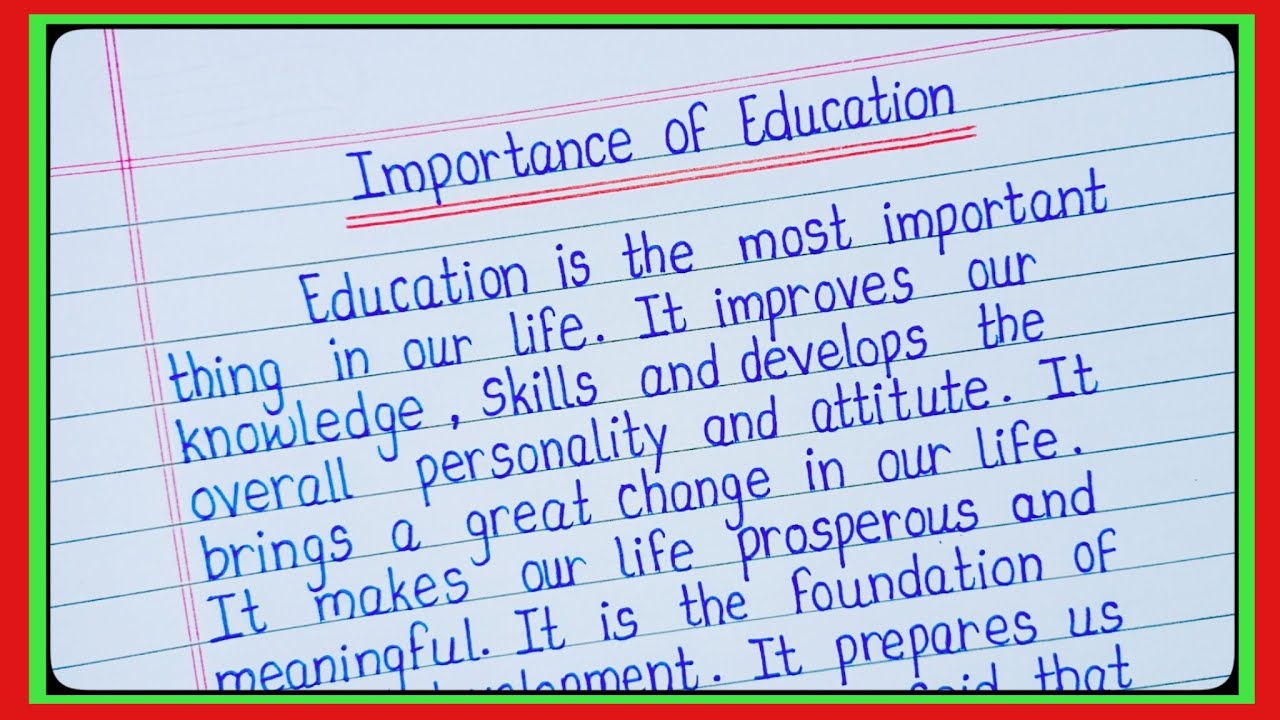 Importance of Education
Education is the most important
thing in our life. It improves our
knowledge, Skills and develops the
overall personality and attitute. It
brings a great change in our life.
It makes our life prosperous and
meaningful. It is the foundation of
development. It prepares us
said that